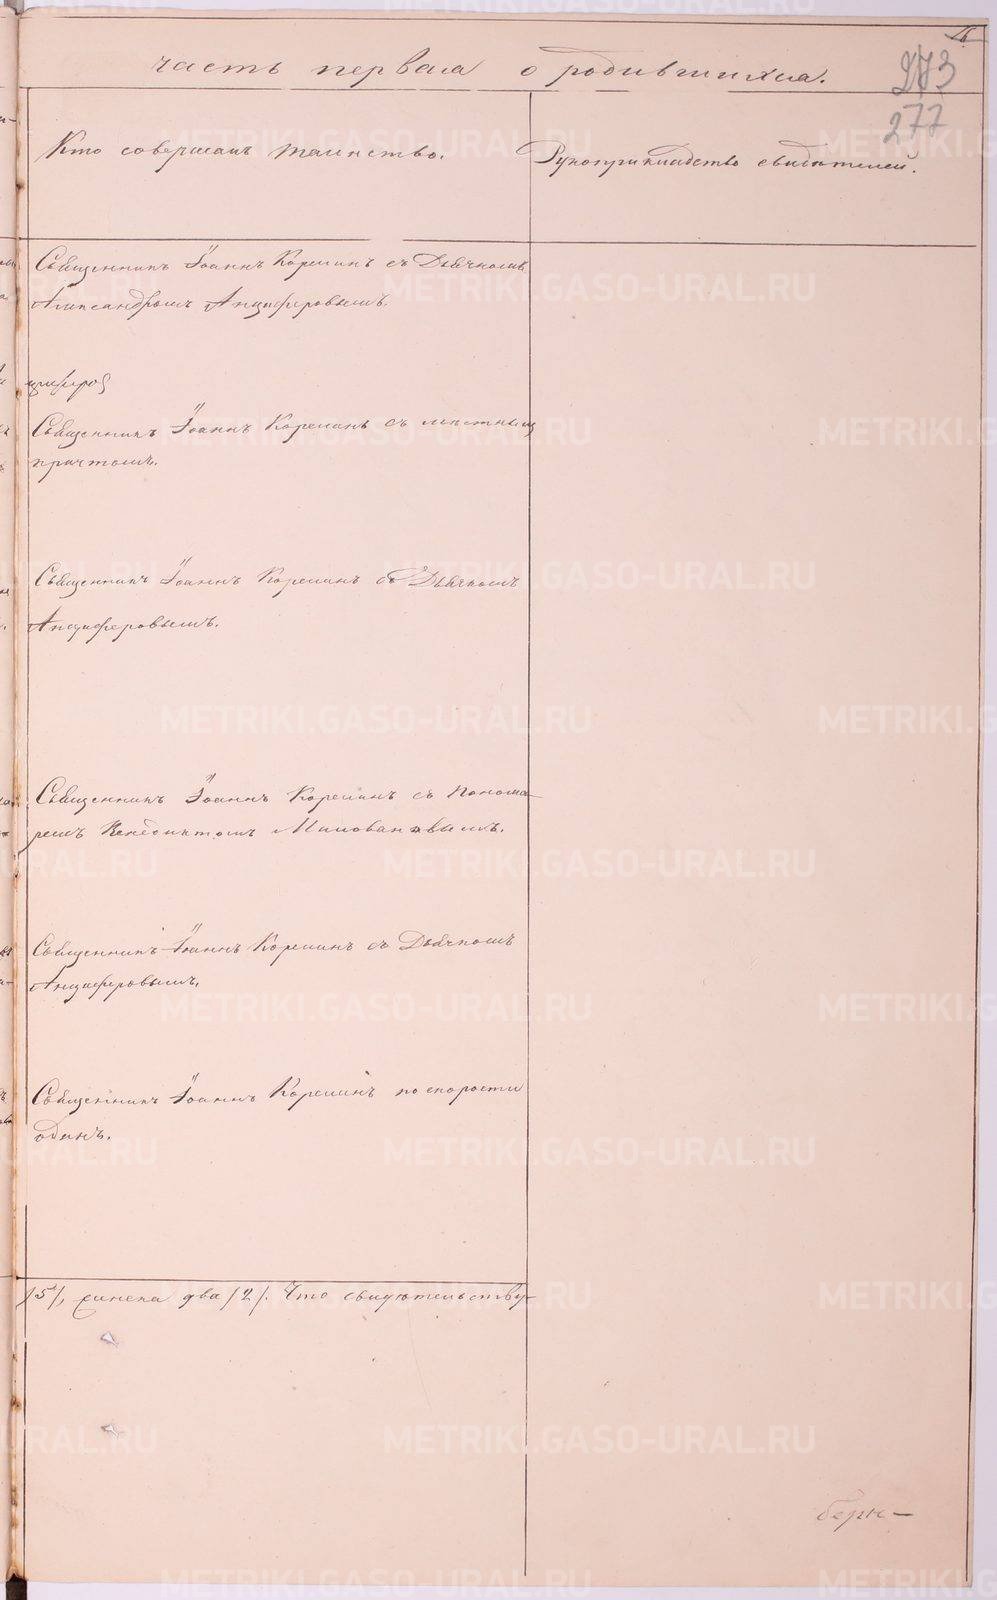 часть первая о родившихся.
273
277
Кто совершалъ таинство.
Рукоприкладство свидѣтелей.
Священникъ Іоаннъ Корелинъ съ Дьячкомъ
Александромъ Анциферовымъ.
Священникъ Іоаннъ Корелинъ съ мѣстнымъ
причтомъ.
Священникъ Іоаннъ Корелинъ съ Дьячкомъ
Анциферовымъ.
Священникъ Іоаннъ Корелинъ съ Понома-
ремъ Венедиктомъ Миловановымъ.
Священникъ Іоаннъ Корелинъ съ Дьячкомъ
Анциферовымъ.
Священникъ Іоаннъ Корелинъ по скорости
одинъ.
/5/, женска два /2/. Что свидѣтельству-
METRIKI.GASO-URAL.RU